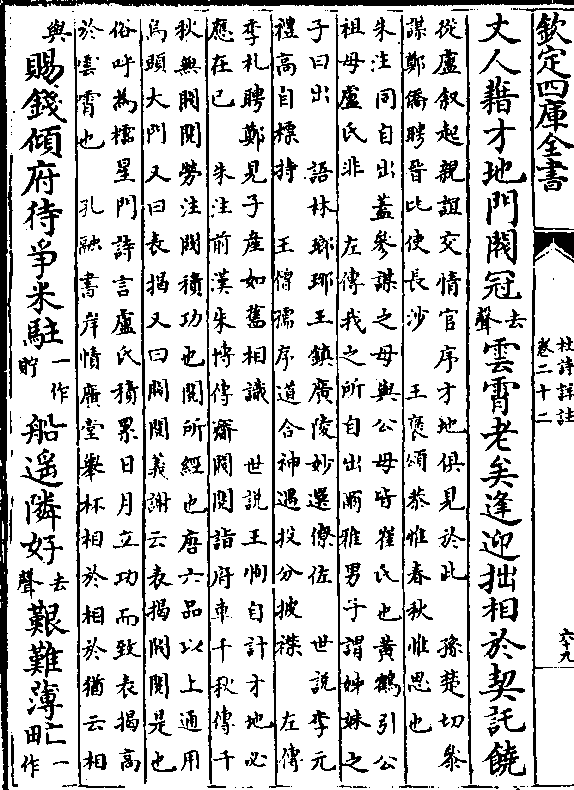 欽定四庫全書
杜詩詳註
卷二十二
六十九
丈人藉才地門閥冠去聲雲霄老矣逢迎拙相於契託饒
從盧叙起親誼交情官序才地俱見於此 孫楚切參
謀鄭僑聘晉比使長沙 王褒頌恭惟春秋惟思也
朱注同自出蓋參謀之母與公母皆崔氏也黃鶴引公
祖母盧氏非 左傳我之所自出爾雅男子謂姊妹之
子曰出 語林瑯琊王鎮廣陵妙選僚佐 世說李元
禮高自標持 王僧孺序道合神遇投分披襟 左傳
季札聘鄭見子產如舊相識 世說王恂自計才地必
應在已 朱注前漢朱博傳齋閥閱詣府車千秋傳千
秋無閥閱勞注閥積功也閱所經也唐六品以上通用
烏頭大門又曰表揭又曰閥閱義謝云表揭閥閱是也
俗呼為櫺星門詩言盧氏積累日月立功而致表揭高
於雲霄也 孔融書岸情廣堂舉杯相於相於猶云相
與
賜錢傾府待爭米駐一作貯船遥隣好去聲艱難薄甿一作